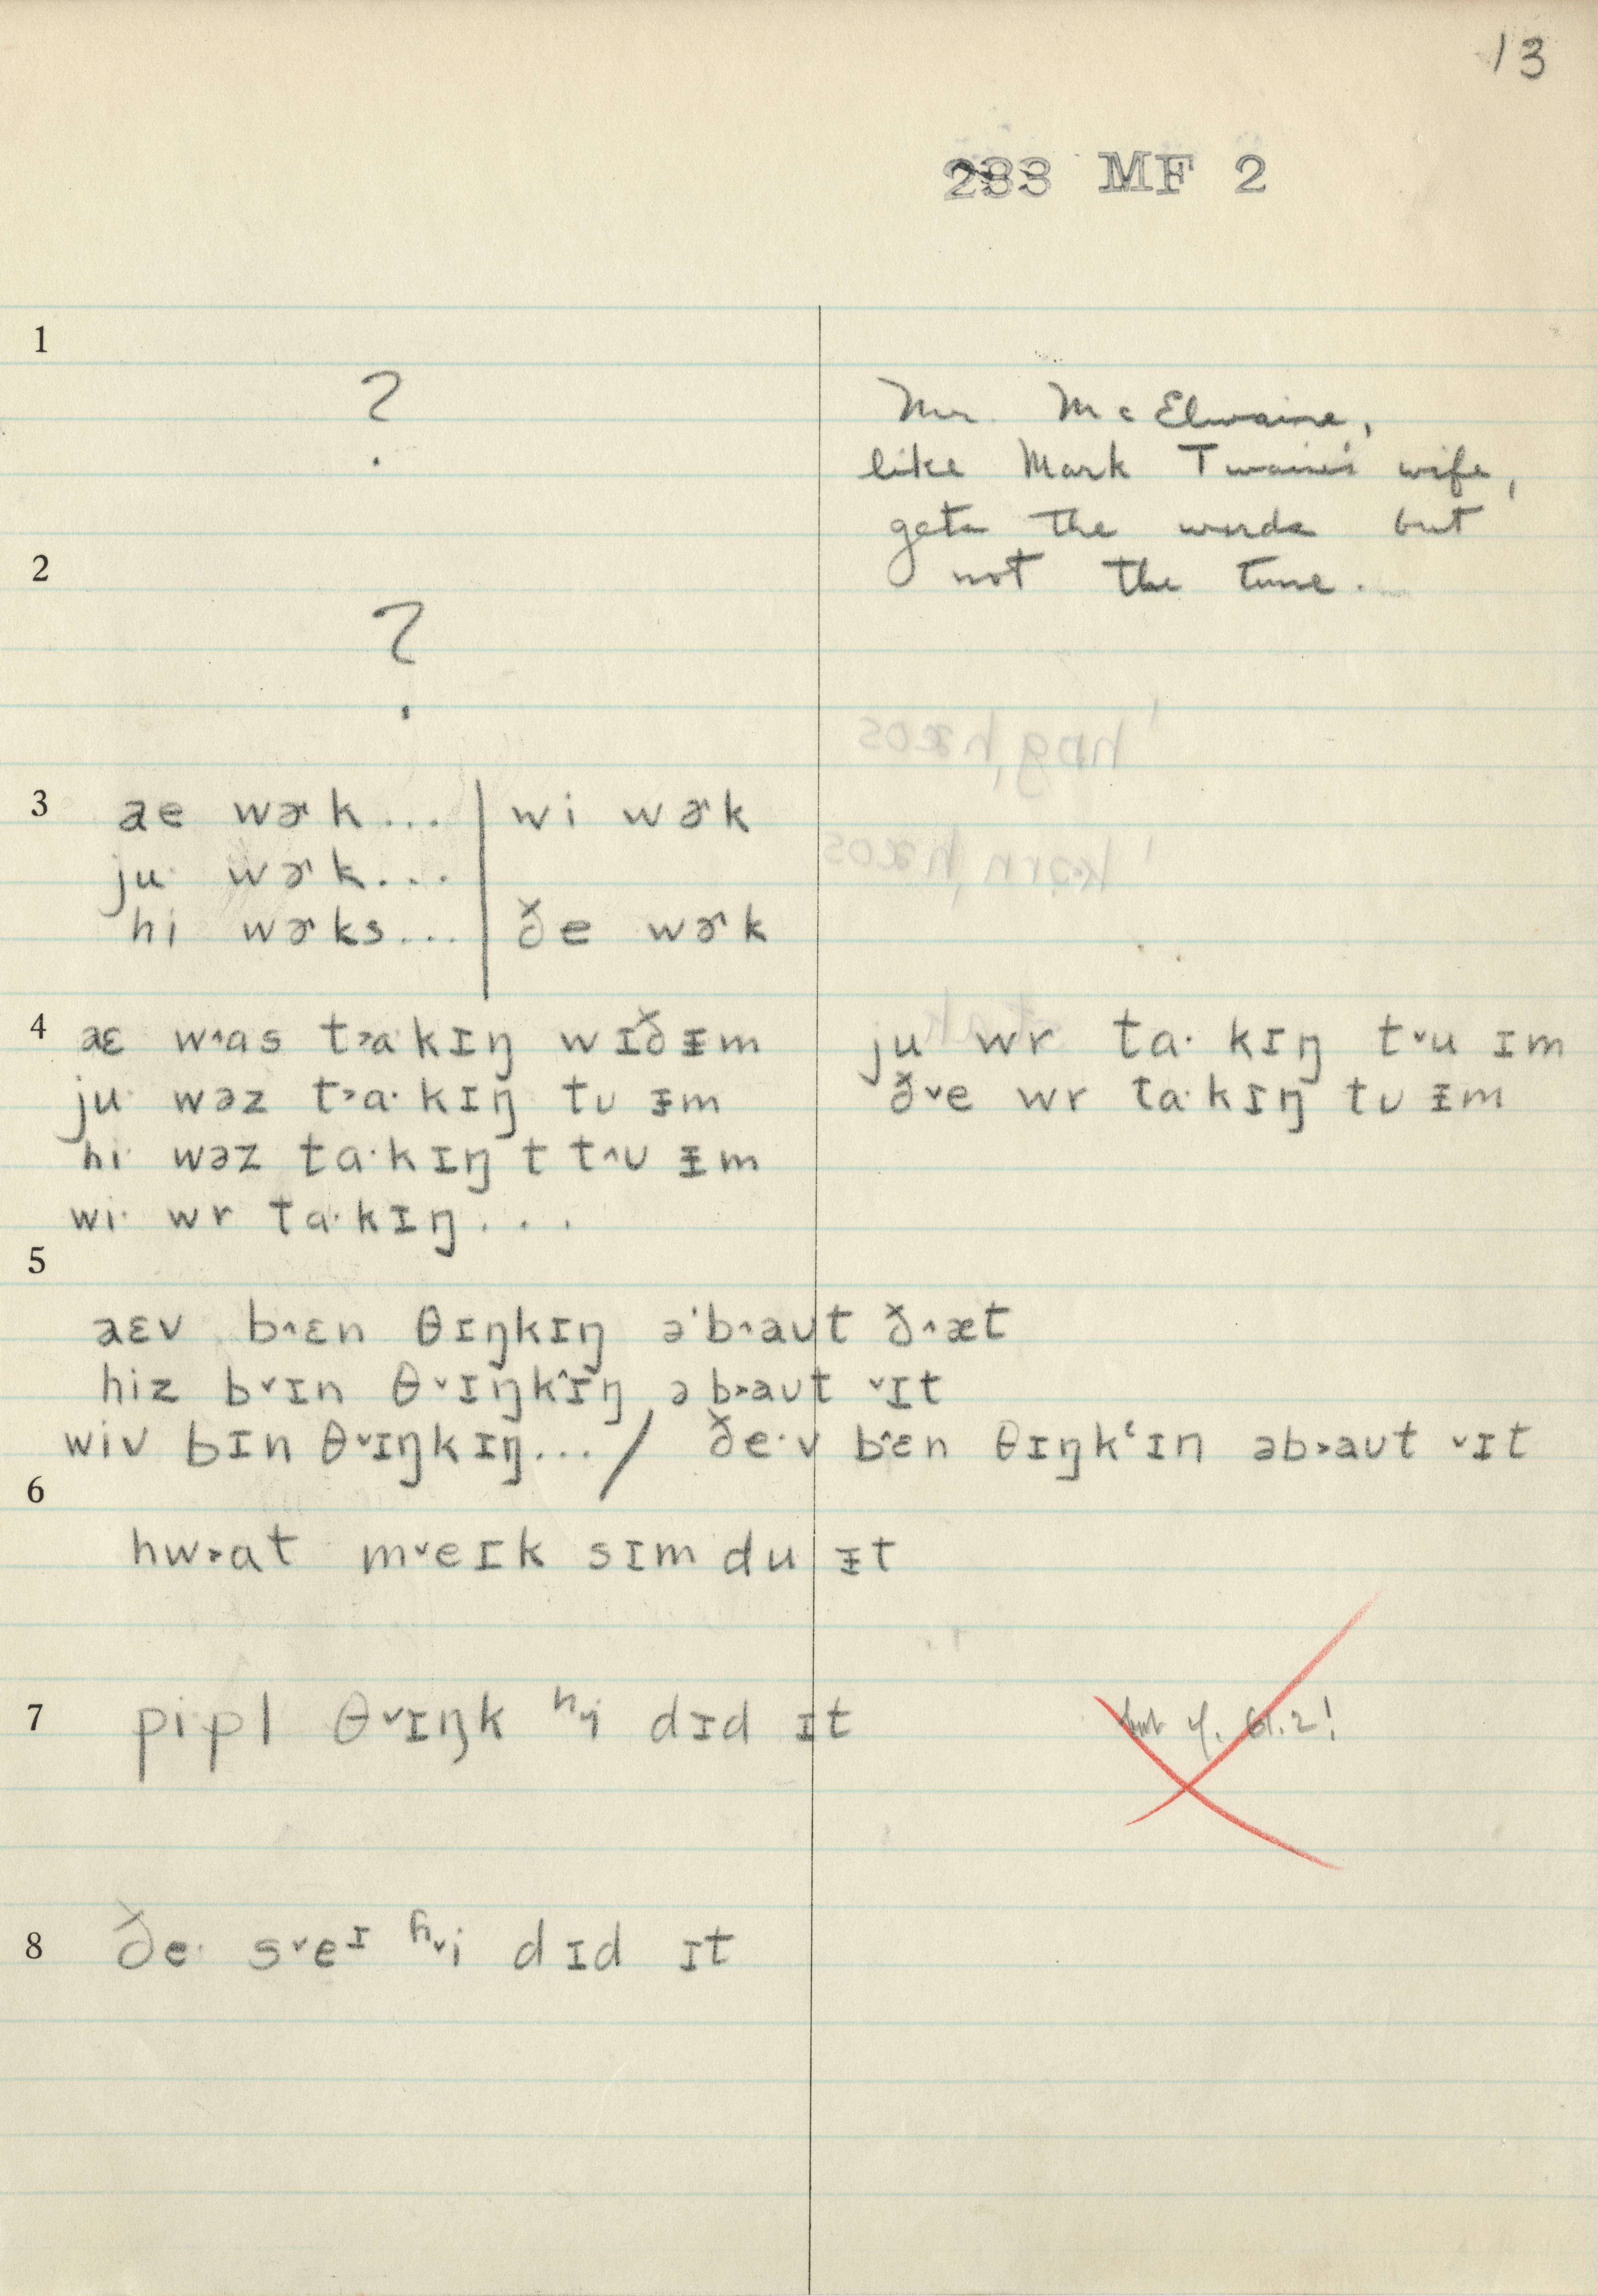 13
233 MF 2
1
?
Mr. McElwaine,
like Mark Twain's wife,
gets the words but
not the tune.
2
?
3
ae wɚk... | wi wɚk
ju· wɚk...
hi wɚks... | ðe wɚk
4
aɛ w˄as t˃a·kɪŋ wɪðᵻm
ju· wəz t˃a·kɪŋ tʊ ᵻm
hi· wəz ta·kɪŋ t t˄ʊ ᵻm
wi· wr ta·kɪŋ...
ju wr ta·kɪŋ t˅u ɪm
ð˅e wr ta·kɪŋ tʊ ᵻm
5
aɛv b˄ɛn θɪŋkɪŋ ə'b˄aʊt ð˄æt
hiz b˅ɪn θ˅ɪŋk˄ɪŋ əb˃aʊt ˅ɪt
wiv bɪn θ˅ɪŋkɪŋ... / ðe·v b˄ɛn θɪŋkʻɪn əb˃aʊt ˅ɪt
6
hw˃at m˅eɪk sɪm du ᵻt
7
pi·pl θ˅ɪŋk ʰ˅i dɪd ɪt
8
ðe· s˅eᶦ ʰ˅i dɪd ɪt